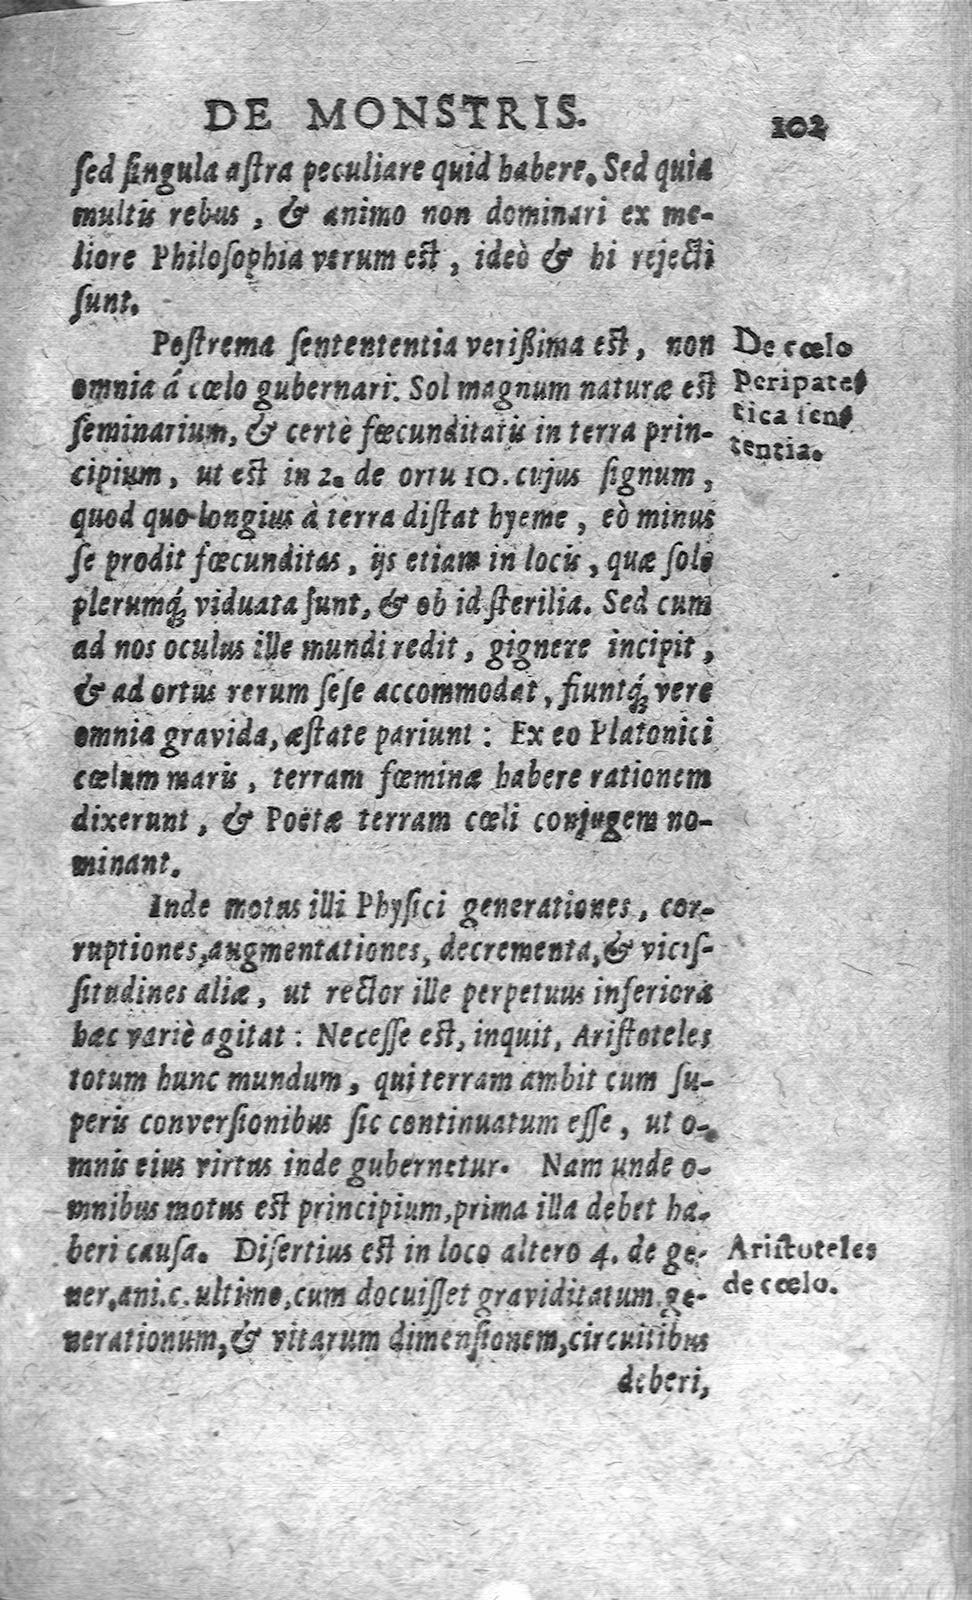 DE MONSTRIS.
102
ſed ſingula aſtra peculiare quid habere. Sed quia
multis rebus, & animo non dominari ex me-
liore Philoſophia verum est, ideò & hi rejecti
ſunt.
Poſtrema ſentententia verißima est, non
omnia á cœlo gubernari. Sol magnum naturæ est
ſeminarium, & certè fœcunditatis in terra prin-
cipium, ut est in 2. de ortu 10. cujus ſignum,
quod quo longius à terra diſtat hyeme, eò minus
ſe prodit fœcunditas, ijs etiam in locis, quæ ſole
plerumq́; viduata ſunt, & ob id ſterilia. Sed cum
ad nos oculus ille mundi redit, gignere incipit,
& ad ortus rerum ſeſe accommodat, fiuntq́; verè
omnia gravida, æſtate pariunt: Ex eo Platonici
cœlum maris, terram fœminæ habere rationem
dixerunt, & Poëtæ terram cœli conjugem no-
minant.
Inde motus illi Phyſici generationes, cor-
ruptiones, augmentationes, decrementa, & viciſ-
ſitudines aliæ, ut rector ille perpetuus inferiora
hæc variè agitat: Neceſſe est, inquit, Ariſtoteles
totum hunc mundum, qui terram ambit cum ſu-
peris converſionibus ſic continuatum eſſe, ut o-
mnis eius virtus inde gubernetur. Nam unde o-
mnibus motus est principium, prima illa debet ha-
beri cauſa. Diſertius est in loco altero 4. de ge-
ner, ani. c. ultimo, cum docuiſſet graviditatum ge-
nerationum, & vitarum dimenſionem, circuitibus
deberi,
De cœlo
Peripate-
tica ſen-
tentia.
Ariſtoteles
de cœlo.